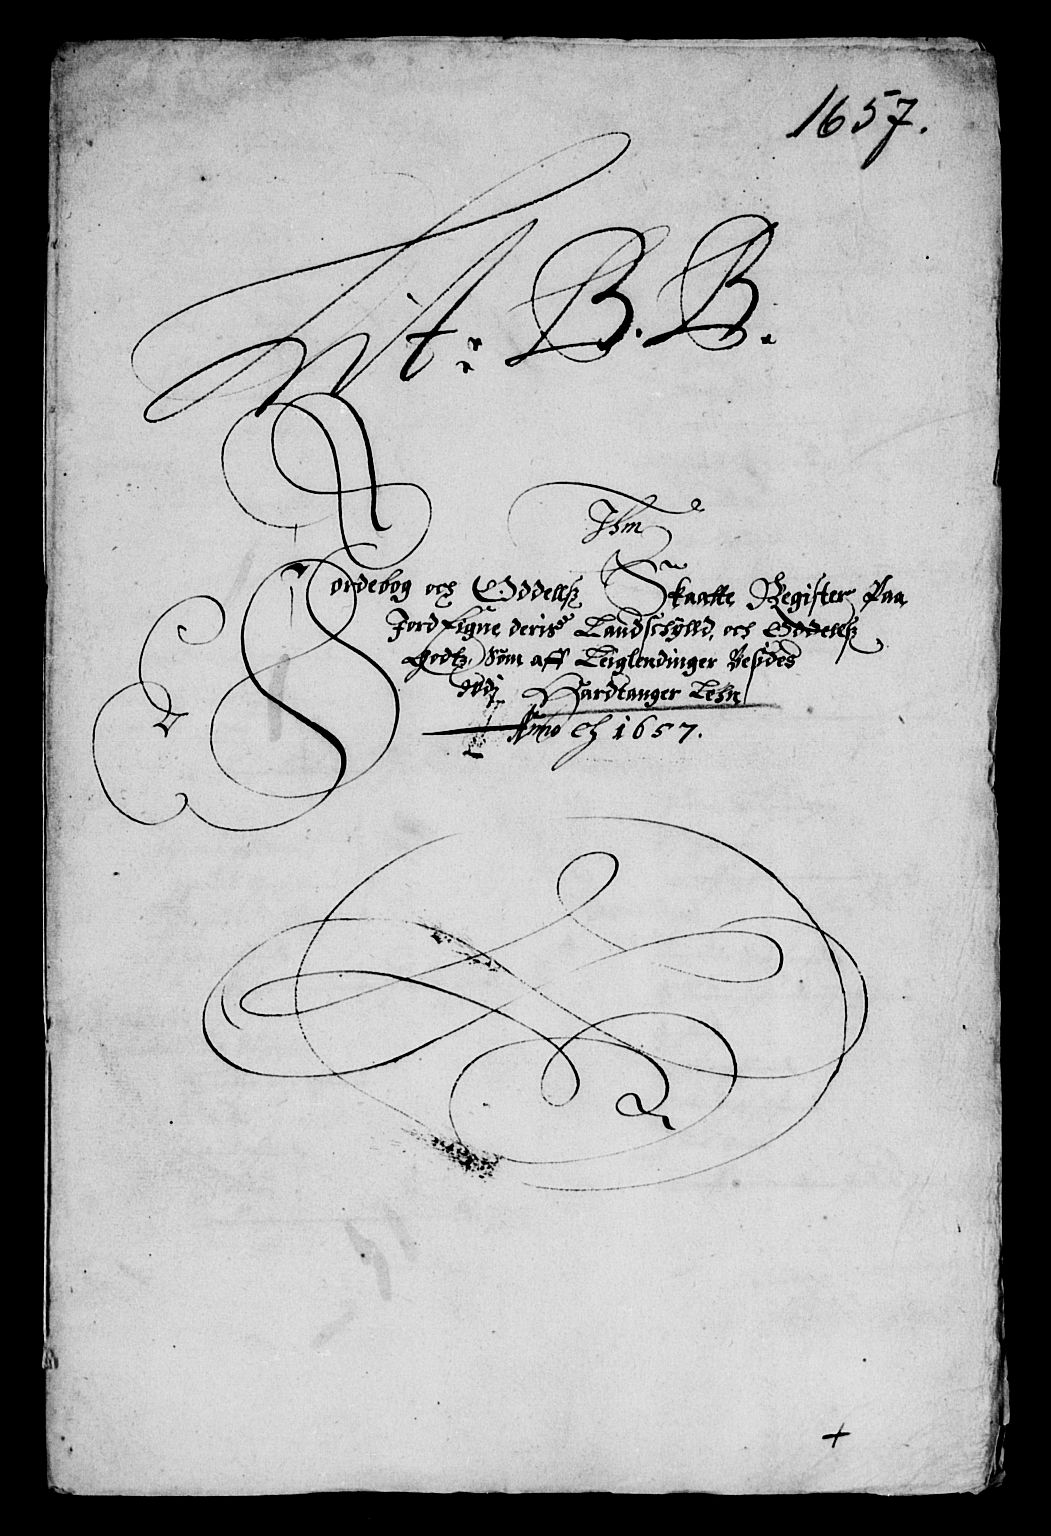 1657.
Lit: B. B.
Ihm
Jordebog och Oddellß Skaatte Register Paa
Jord Eigne deris Landschÿlld, och Oddellß
Godtz, Som aff Leiglendinger Besides
udj Hardtanger Lehn
Anno &c 1657.
+